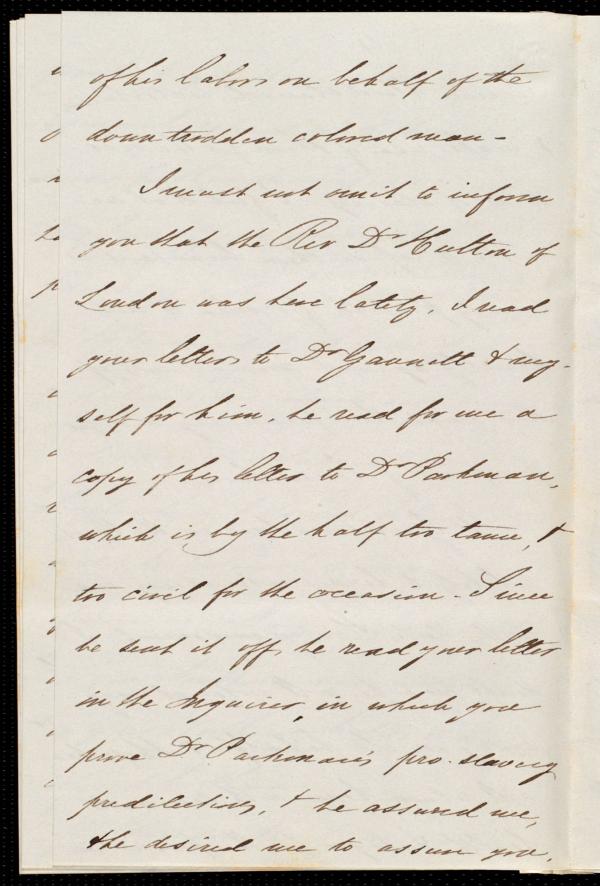 of his labors on behalf of the
down trodden colored man -
I must not omit to inform
you that the Rev Dr Hutton of
London was here lately, I read
your letters to Dr Gannett & my-
self for him, he read for me a
copy of his letter to Dr Parkman,
which is by the half too tame, &
too civil for the occasion - Since
he sent it off, he read your letter
in the Inquirer, in which you
prove Dr Parkman's pro-slavery
predilections, & he assured me,
& he desired me to assure you,